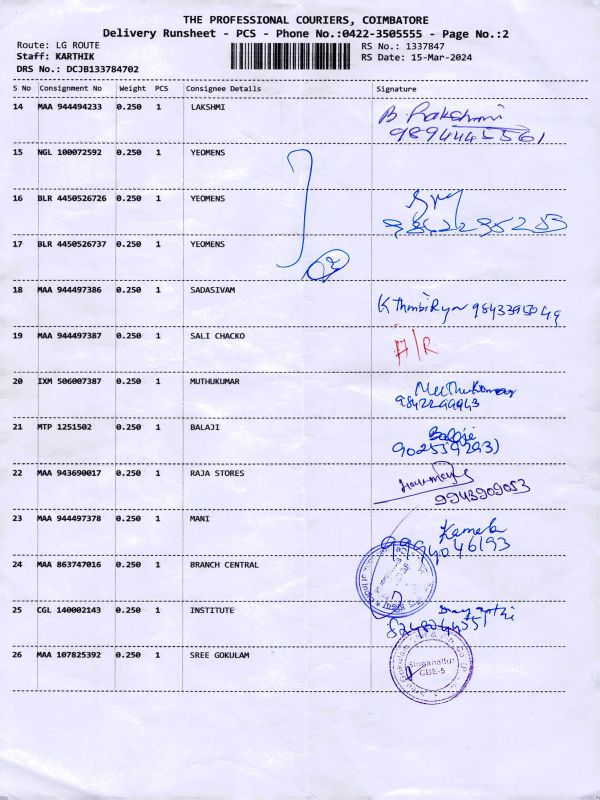 THE PROFESSIONAL COURIERS, COIMBATORE
Delivery Runsheet - PCS - Phone No.:0422-3505555 - Page No.:2
Route: LG ROUTE
RS No.: 1337847
Staff: KARTHIK
RS Date: 15-Mar-2024
DRS No.: DCJB133784702
S No Consignment No Weight PCS Consignee Details Signature
14 MAA 944494233 0.250 1 LAKSHMI
15 NGL 100072592 0.250 1 YEOMENS
16 BLR 4450526726 0.250 1 YEOMENS
17 BLR 4450526737 0.250 1 YEOMENS
18 MAA 944497386 0.250 1 SADASIVAM 9843395049
19 MAA 944497387 0.250 1 SALI CHACKO A/R
20 IXM 506007387 0.250 1 MUTHUKUMAR Muthukumar
21 MTP 1251502 0.250 1 BALAJI Balaji
22 MAA 943690017 0.250 1 RAJA STORES
9943909053
23 MAA 944497378 0.250 1 MANI
9994046193
24 MAA 863747016 0.250 1 BRANCH CENTRAL
25 CGL 140002143 0.250 1 INSTITUTE
26 MAA 107825392 0.250 1 SREE GOKULAM
Singanallur
CBE-5